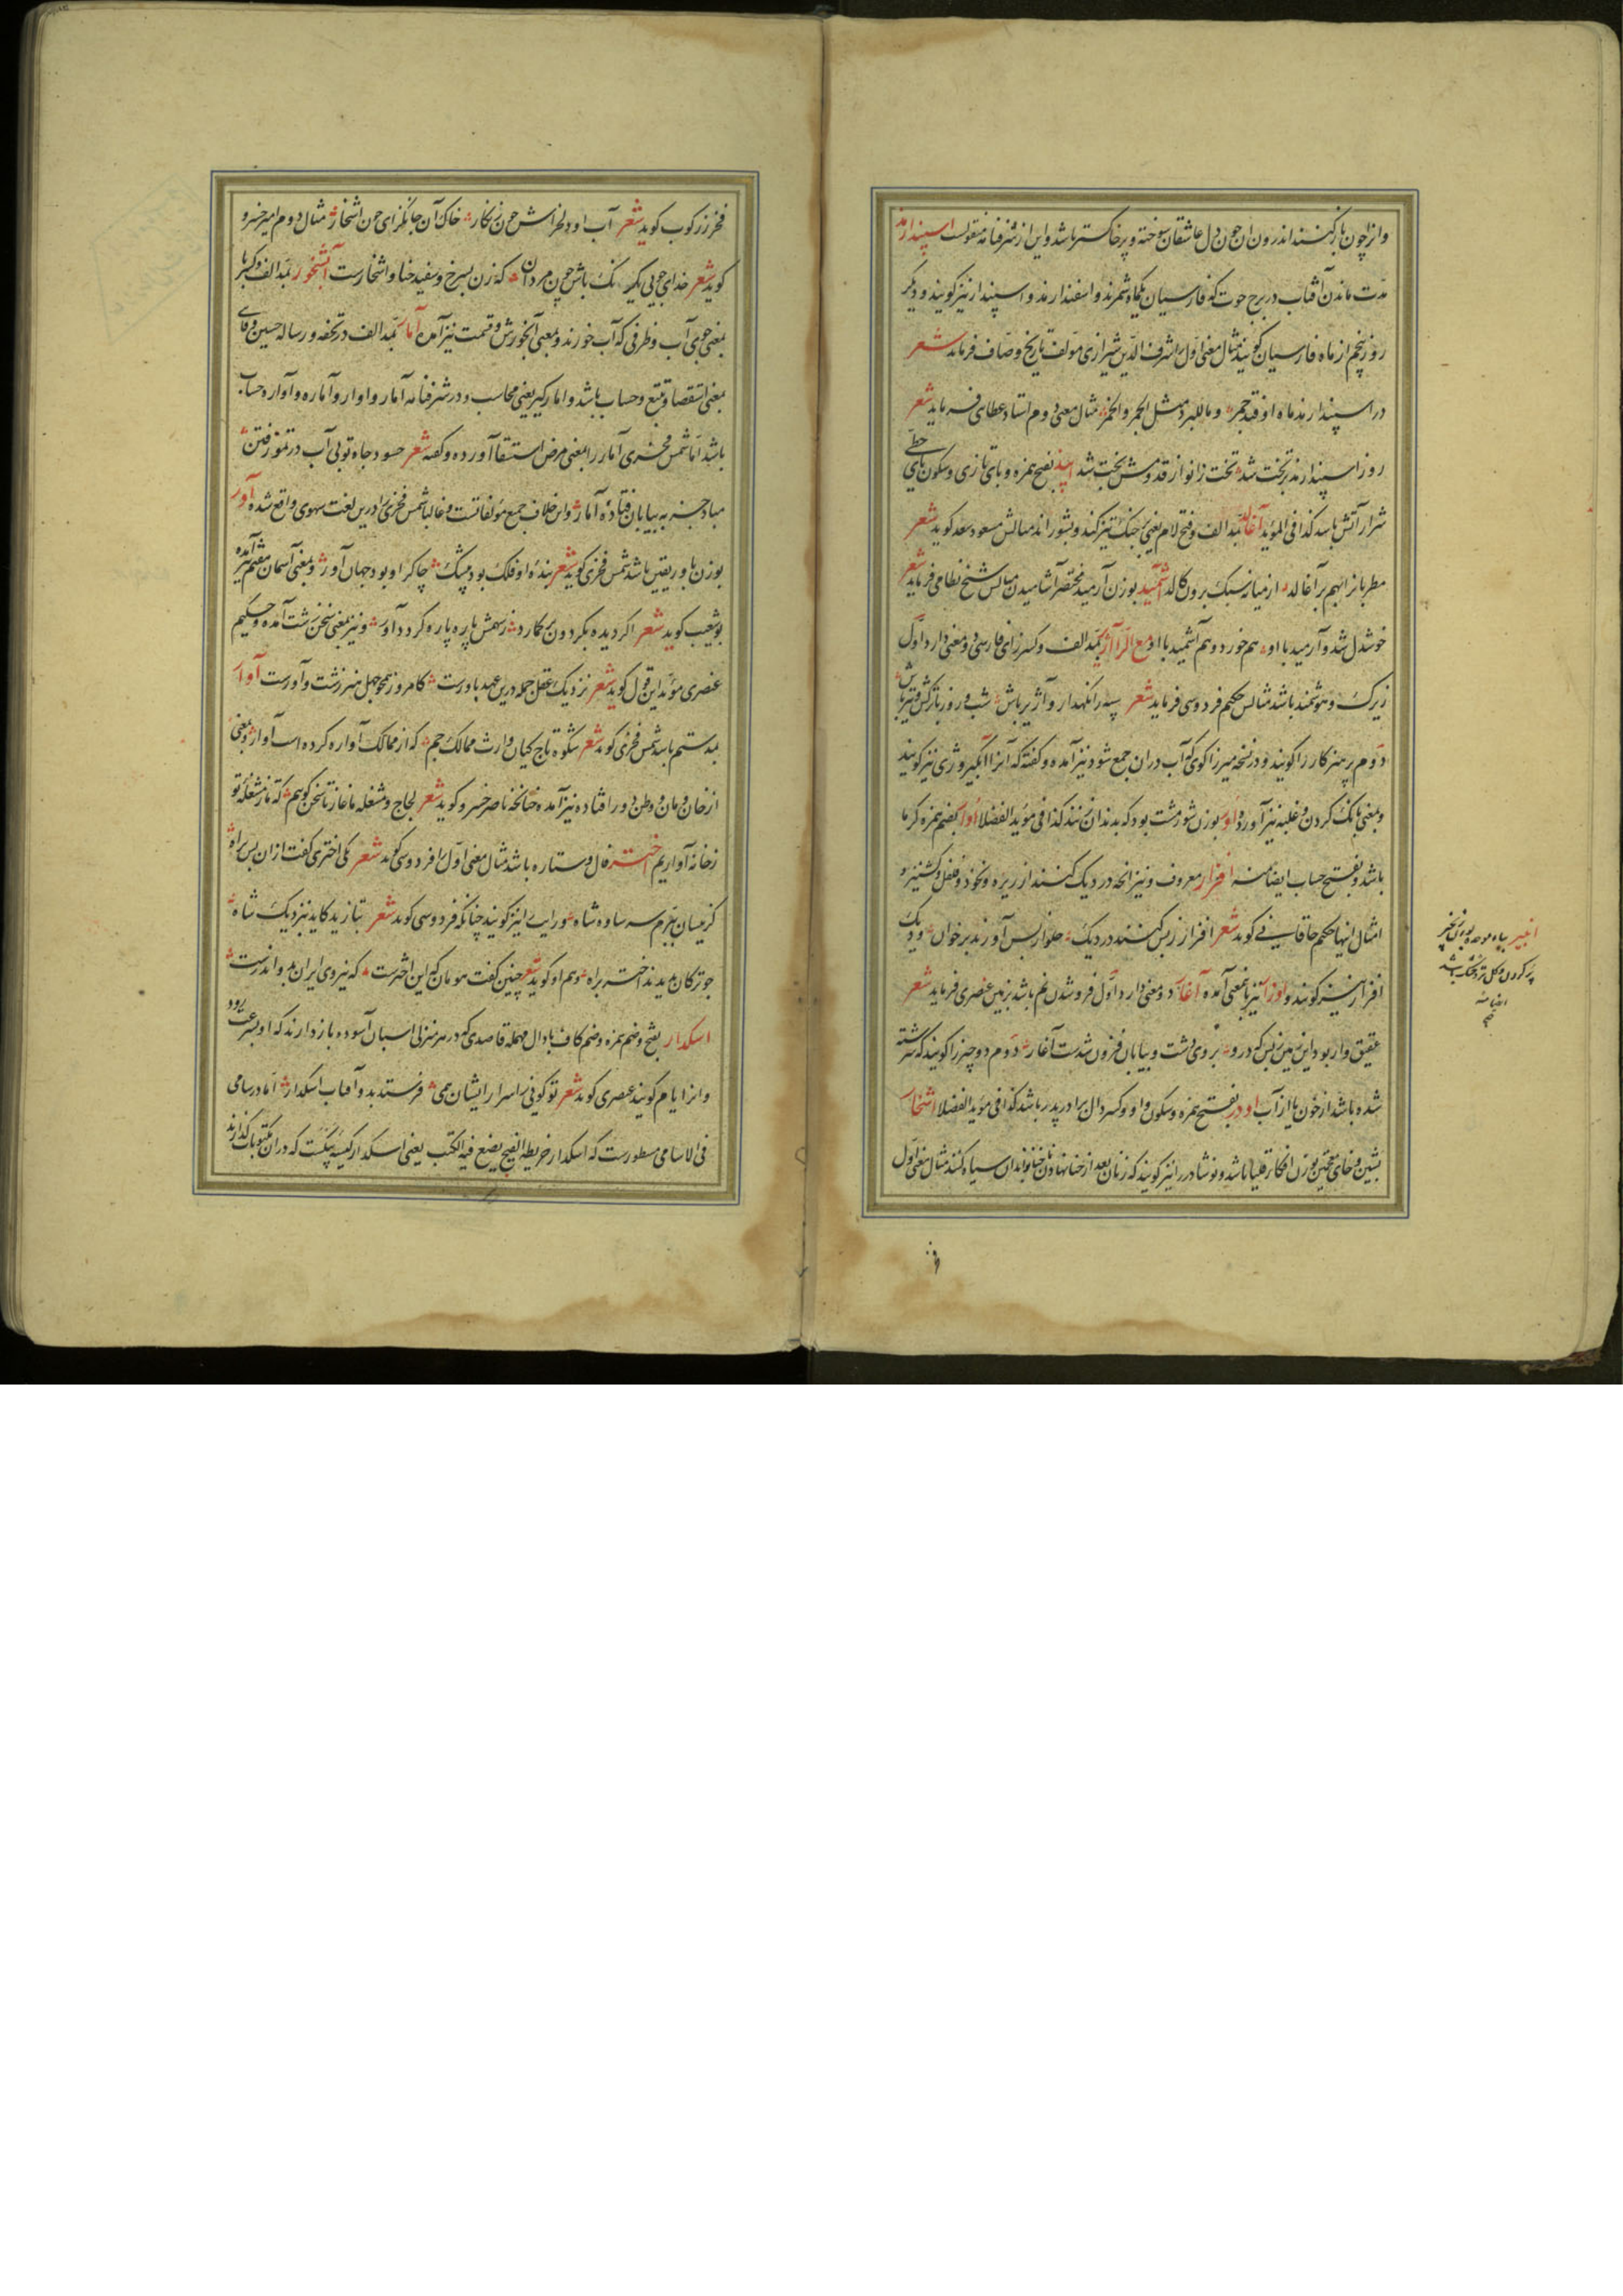 وانرا چون باز کنند اندرون ان چون دل عاشقان سوخته و پر خاکستر باشد و این از شرفنامه منقولست اسپندارمذ
مدت ماندن آفتاب در برج حوت که فارسیان یکماه شمرند و اسفندارمذ و اسپندار نیز گویند و دیگر
روز پنجم از ماه فارسیان گویند مثال معنی اول را شرف الدین شیرازی مولف تاریخ وصاف فرماید شعر
در اسپندارمذ ماه او قد جمر و ما للبرد مثل الجمر و الخمر مثال معنی دوم استاد عطای فرماید شعر
روز اسپندارمذ بر تخت شد تخت زانو از قدومش بخت شد بفتح همزه و بای تازی و سکون یای حطی
شرار آتش باشد کذا فی المؤید آغالد بمد الف و فتح لام یعنی بر جنک تیز کند و بشوراند مثالش مسعود سعد کوید شعر
مطربانرا بهم بر آغالد از میانه سبک برون کالد آشمید بوزن آرمید مختصر آشامیدن مثالش شیخ نظامی فرماید شعر
خوشدل شد و آرمید با او هم خورد و هم آشمید با او مع الرا آژیر بمد الف و کسر زای فارسی دو معنی دارد اول
زیرک و هوشمند باشد مثالش حکیم فردوسی فرماید شعر سپه را نکهدار و آژیر باش شب و روز با ترکش و تیر باش
دوم پرهیزکار را کویند و در نسخه میرزا کوی که آب دران جمع شود نیز آمده و کفته که آنرا آبگیر و ژی نیز کویند
و بمعنی بانک کردن و غلبه نیز آورده اور بوزن شور مشت بود که بدندان نند کذا فی مؤید الفضلا اوار بضم همزه کرما
باشد و بفتح حساب ایضا منه افزار معروف و نیز آنچه در دیک کنند از زیره و نخود و فلفل و کشنیز و
امثال اینها حکیم خاقانی کوید شعر افزار ز پس کنند در دیک حلوا ز پس آورند بر خوان و دیک
افزار نیز کویند و اوزار نیز باینمعنی آمده آغار دو معنی دارد اول فرو شدن نم باشد بزمین عنصری فرماید شعر
عقیق وار بود این زمین ز بس که درو بروی دشت و بیابان فزون شدست آغار دوم دو چیز را کویند که سرشته
شده باشد از خون یا از آب اودر بفتح همزه و سکون واو و کسر دال برادر پدر باشد کذا فی مؤید الفضلا اشخار
بشین و خای معجمتین بوزن افکار قلیا باشد و نوشادر را نیز کویند که زنان بعد از حنا نهادن حنا را بدان سیاه کنند مثال معنی اول
انبیر بباء موحده بوزن نخجیر
پر کردن و کل تر و خشک باشد
ایضا منه
فخر زرکوب کوید شعر آب او دلخراش چون زنکار خاک آن جانکزای چون اشخار مثال دوم امیر خسرو
کوید شعر خدای جویی یکرنک باش چون مردان که زن بسرخ و سفید حنا و اشخارست آبشخور بمد الف و کسر با
بمعنی جوی آب و ظرفی که آب خورند و بمعنی آبخورش و قسمت نیز آمده آمار بمد الف در تحفه و رساله حسین وفائی
بمعنی استقصا و تتبع و حساب باشد و امارکیر یعنی محاسب و در شرفنامه آمار و اوار و آماره و آواره حساب
باشد اما شمس فخری آمار را بمعنی مرض استسقا آورده و کفته شعر حسود جاه تو بی آب در تموز فتن
مباد جز به بیابان فتاده آمار و این خلاف جمیع مؤلفاتست و غالبا شمس فخری را درین لغت سهوی واقع شده آور
بوزن باور یقین باشد شمس فخری کوید شعر بنده او فلک بود بیشک چاکر او بود جهان آور و بمعنی آسمان مقیم نیز آمده
بو شعیب کوید شعر اکر دیده بکردون بر کمارد ز سهمش پاره پاره کردد آور و نیز بمعنی سخن زشت آمده و حکیم
عنصری مؤید این قول کوید شعر نزدیک عقل جمله درین عهد باورست کامروز همچو جهل هنر زشت و آورست آوار
بمد ستم باشد شمس فخری کوید شعر شکوه تاج کیان وارث ممالک جم که از ممالک آواره کرده است آوار و بمعنی
از خان و مان و وطن دور افتاده نیز آمده چنانچه ناصر خسرو کوید شعر لجاج و مشغله ماغاز تا سخن کویم که ما ز مشغله تو
ز خانه آواریم اختر فال و ستاره باشد مثال معنی اول را فردوسی کوید شعر یکی اختری کفت ازان پس براه
کزیسان ببرم سر ساوه شاه و رایت را نیز کویند چنانکه فردوسی کوید شعر بتازید کاید بنزدیک شاه
چو ترکان بدیدند اختر براه و هم او کوید شعر چنین کفت هومان که این اخترست که نیروی ایران بدو اندرست
اسکدار بفتح و ضم همزه و ضم کاف با دال مهمله قاصدی که در هر منزلی اسبان آسوده باز دارند که او بسرعت رود
و انرا یام کویند عنصری کوید شعر تو کوفی ز اسرار ایشان همی فرستد بدو آفتاب اسکدار اما در سامی
فی الاسامی مسطورست که اسکدار خریطه الفیج یضع فیه الکتب یعنی اسکدار کیسه پیکست که دران مکتوبات کذارند